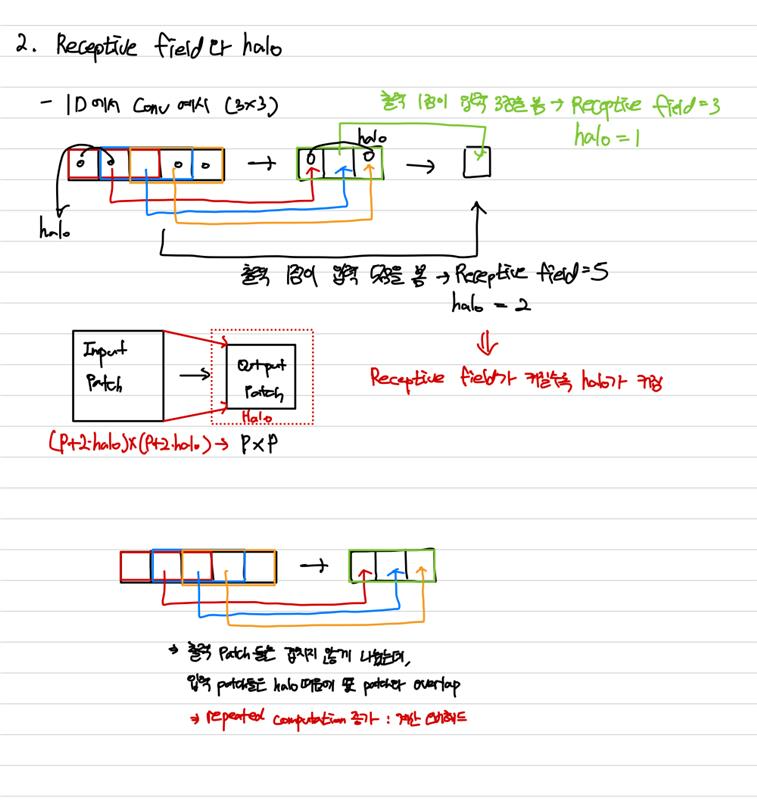 2. Receptive field와 halo
- 1D에서 Conv 예시 (3×3)
출력 1점이 입력 3점을 봄 → Receptive field = 3
halo = 1
halo
halo
출력 1점이 입력 5점을 봄 → Receptive field = 5
halo = 2
Receptive field가 커질수록 halo가 커짐
Input Patch
Output Patch
Halo
(P+2·halo)×(P+2·halo) → P×P
→ 출력 Patch들은 겹치지 않게 나눴는데,
입력 patch들은 halo 때문에 옆 patch와 overlap
→ repeated computation 증가 : 계산 오버헤드